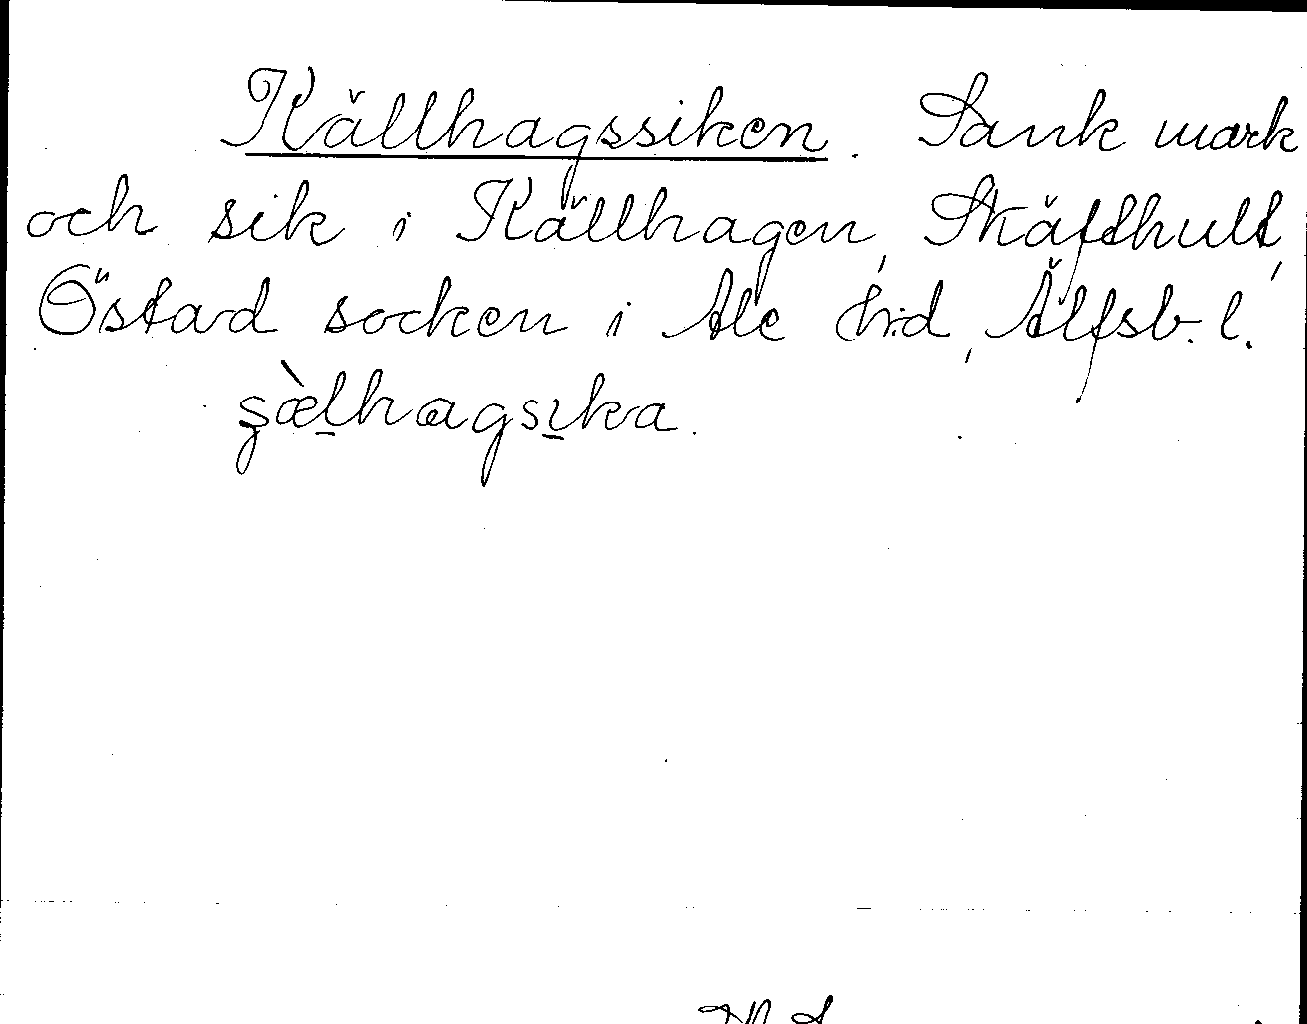 Källhagssiken. Sank mark
och sik i Källhagen, Skäfthult,
Östad socken i Ale h:d, Älfsb. l.
ʂæ̀lhagsıka.